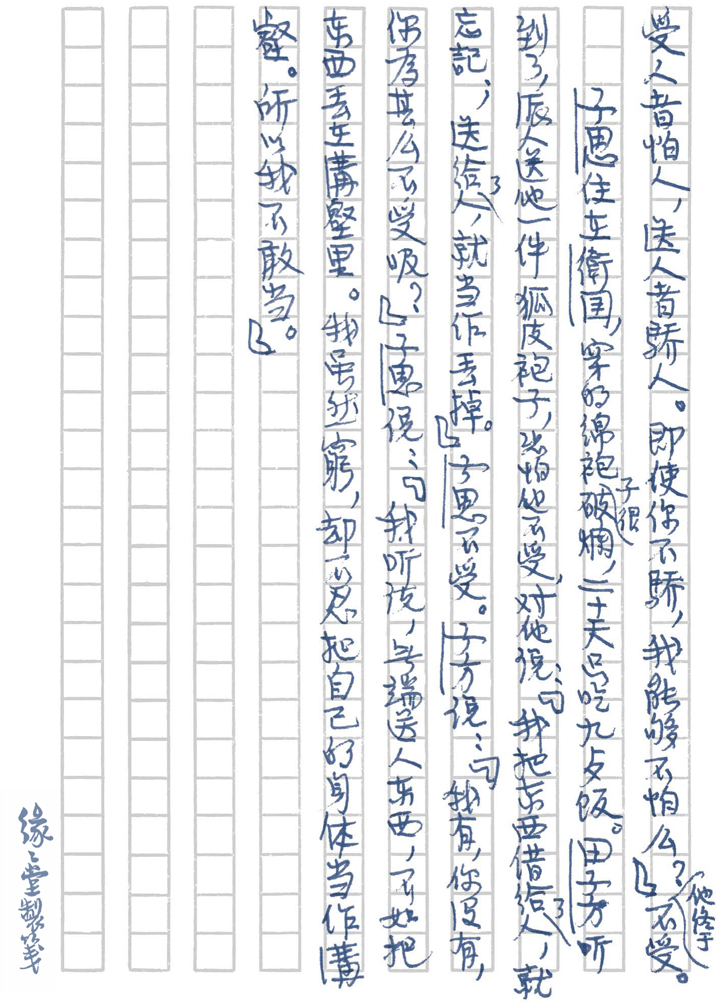 受人者怕人，送人者骄人。即使你不骄，我能够不怕么？」他终于不受。
子思住在衛国，穿的綿袍子很破爛，二十天只吃九歺饭。田子方听
到了，派人送他一件狐皮袍子，恐怕他不受，对他说：「我把东西借给了人，就
忘記；送给了人，就当作丢掉。」子思不受。子方说：「我有，你没有，
你為甚么不受呢？」子思说：「我听说，無端送人东西，不如把
东西丢在溝壑里。我虽然窮，却不忍把自己的身体当作溝
壑。所以我不敢当。」
緣緣堂製箋